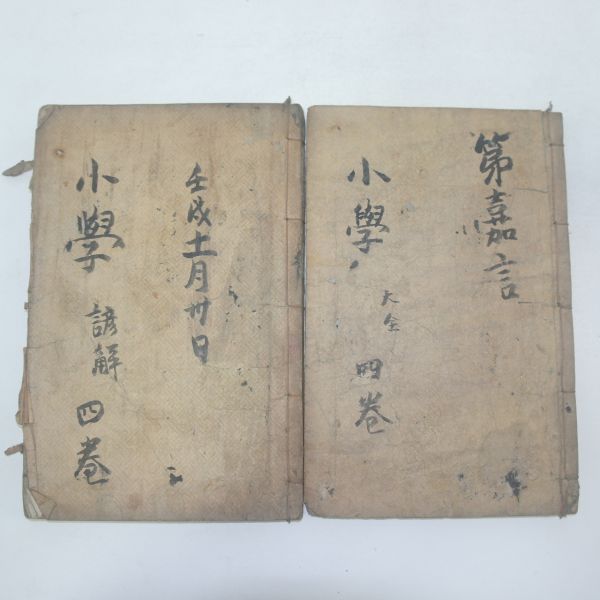 小學 諺解 四巻
壬戌十一月卅日
小學 大全 四巻
第嘉言